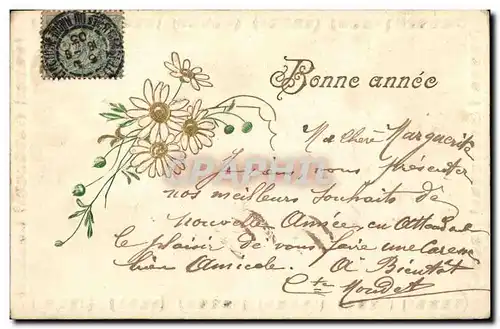 Bonne année
Ma chère Marguerite
Je viens vous présenter
nos meilleurs Souhaits de
nouvelle Année, en Attendant
le plaisir de vous faire une Caresse
bien Amicale. A Bientôt